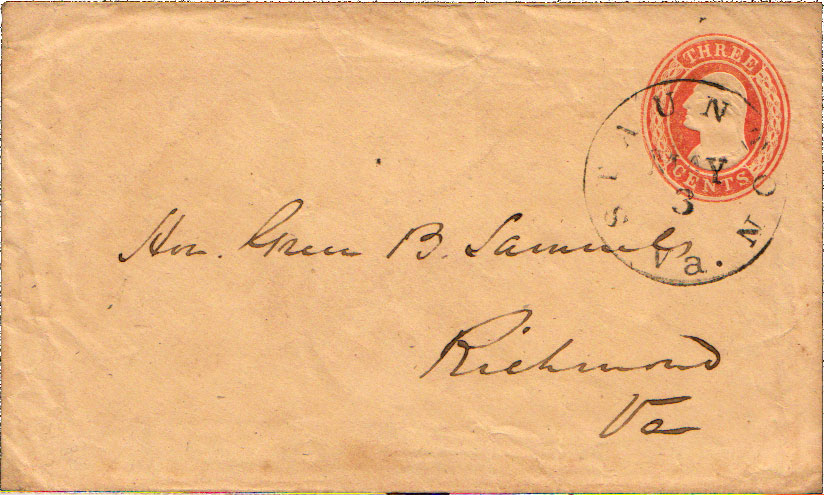 THREE
CENTS
STAUNTON
MAY
3
Va.
Hon. Green B. Samuels
Richmond
Va